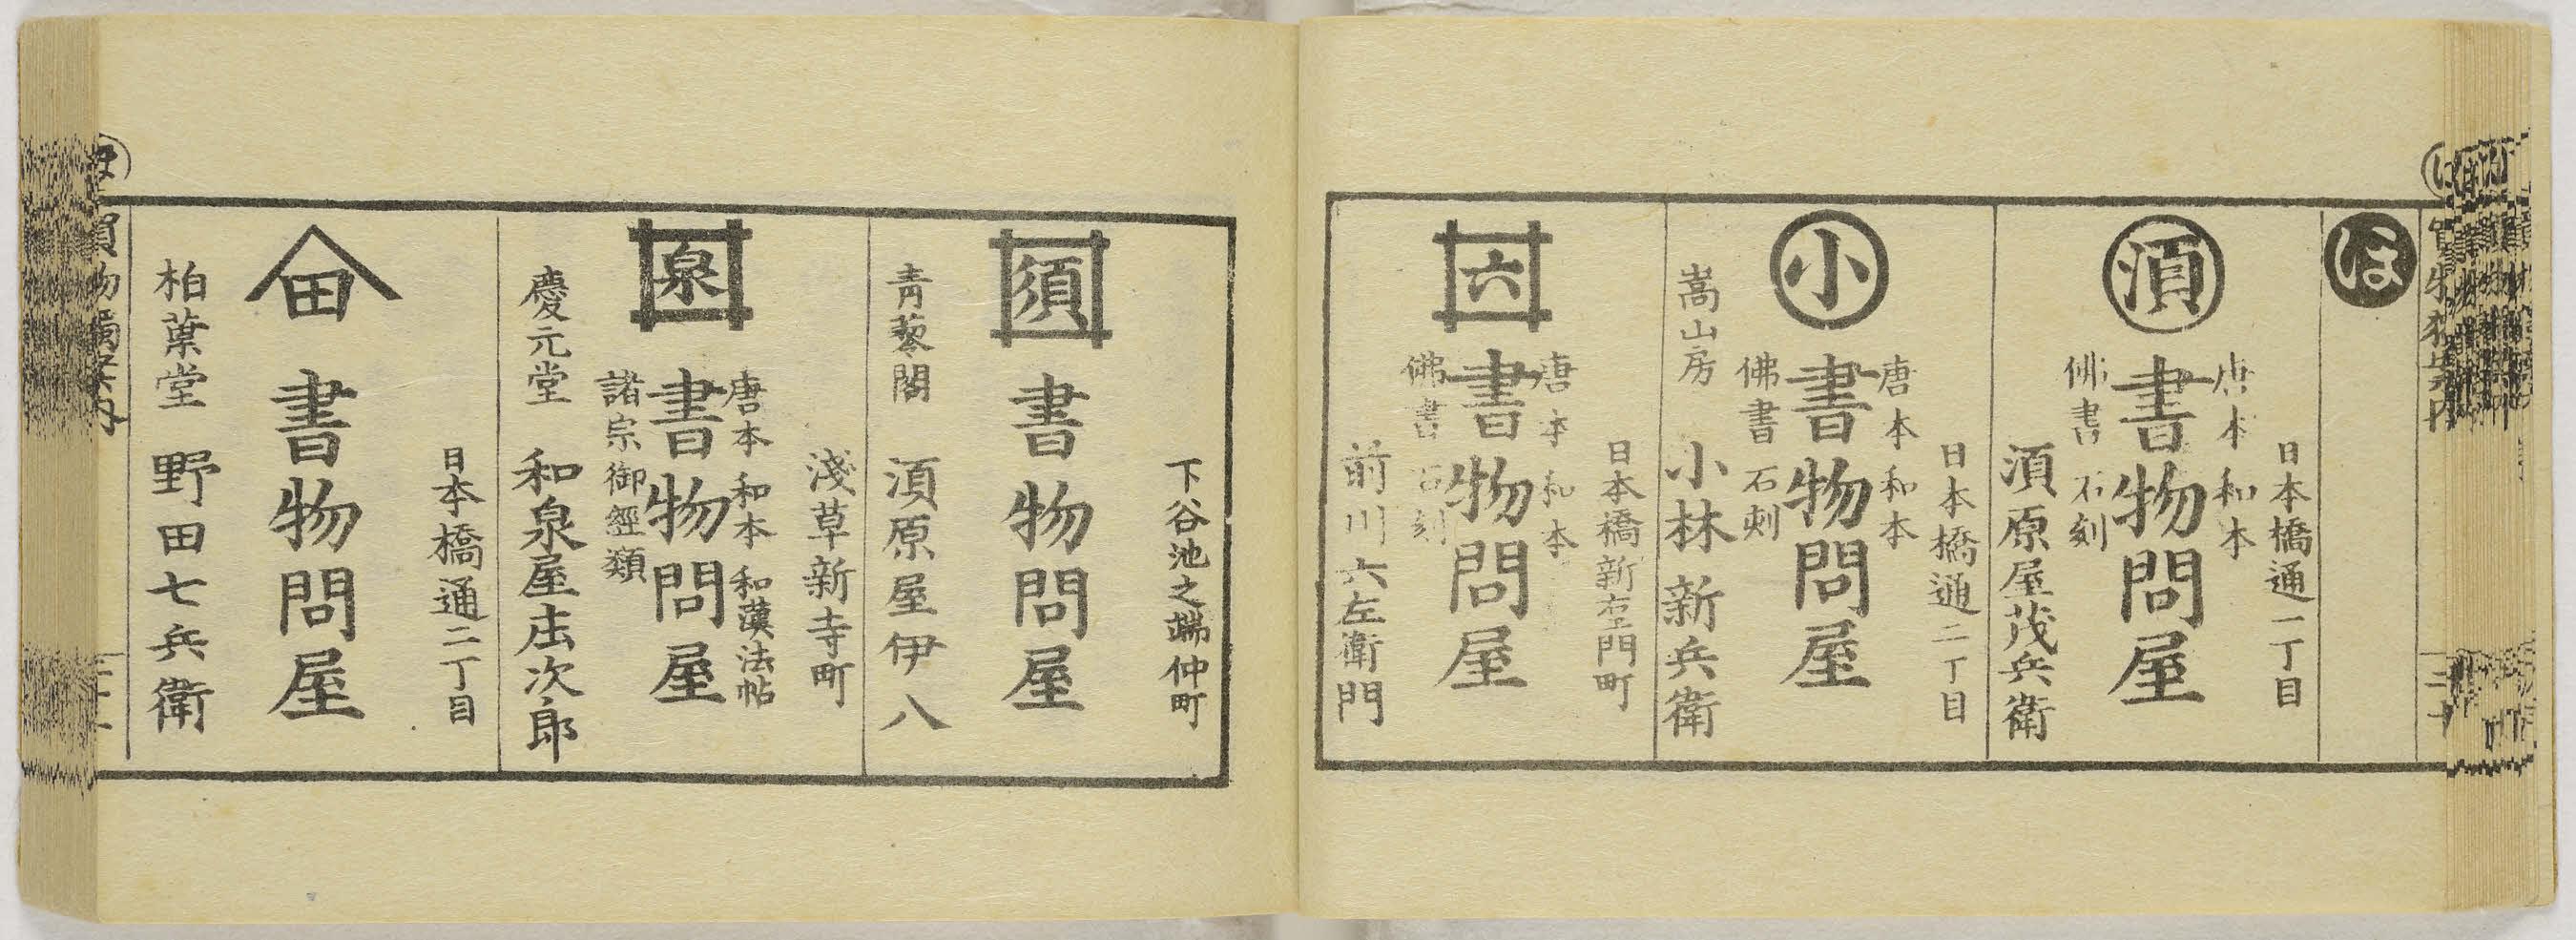 ほ
日本橋通一丁目
須
唐本和本
書物問屋
佛書石刻
須原屋茂兵衛
日本橋通二丁目
小
唐本和本
書物問屋
佛書石刻
嵩山房
小林新兵衛
日本橋新右エ門町
六
唐本和本
書物問屋
佛書石刻
前川六左衛門
下谷池之端仲町
須
書物問屋
青藜閣
須原屋伊八
淺草新寺町
泉
唐本和本和漢法帖
書物問屋
諸宗御經類
慶元堂
和泉屋庄次郎
日本橋通二丁目
田
書物問屋
柏葉堂
野田七兵衛